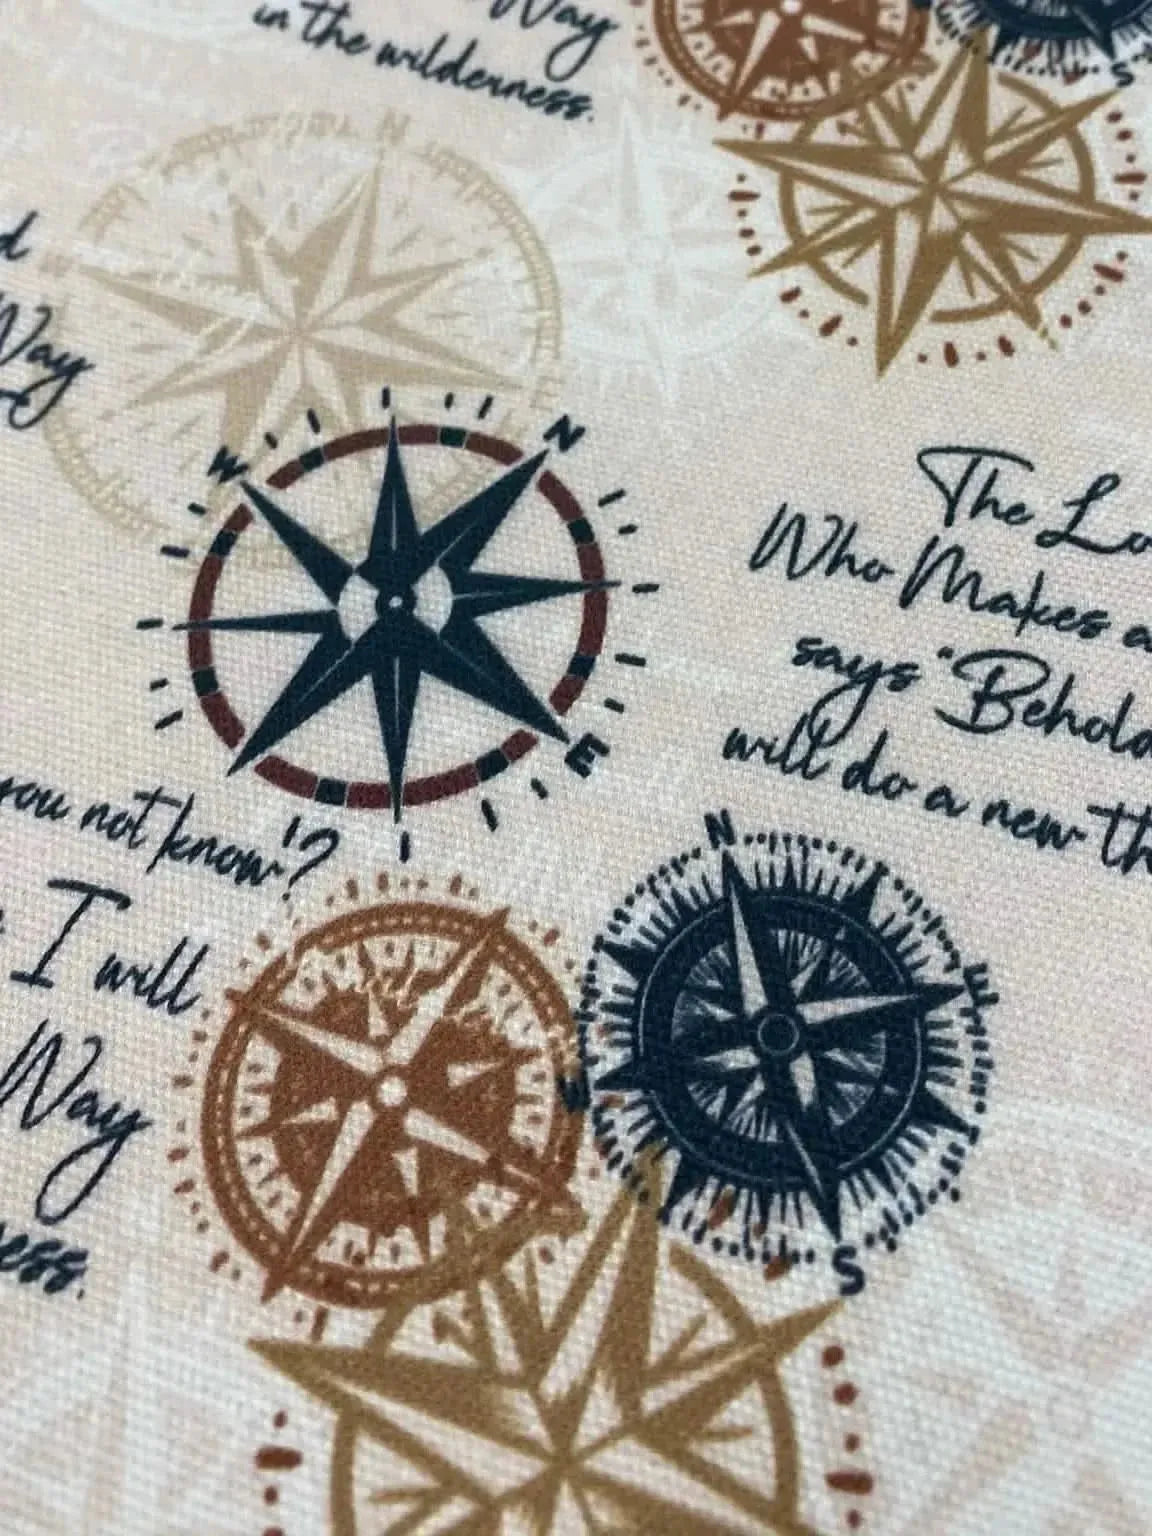 Way
in the wilderness.
N
S
Way
N
W
The
Who Makes a
says "Behold
will do a new
E
you not know'?
N
I will
Way
S
N